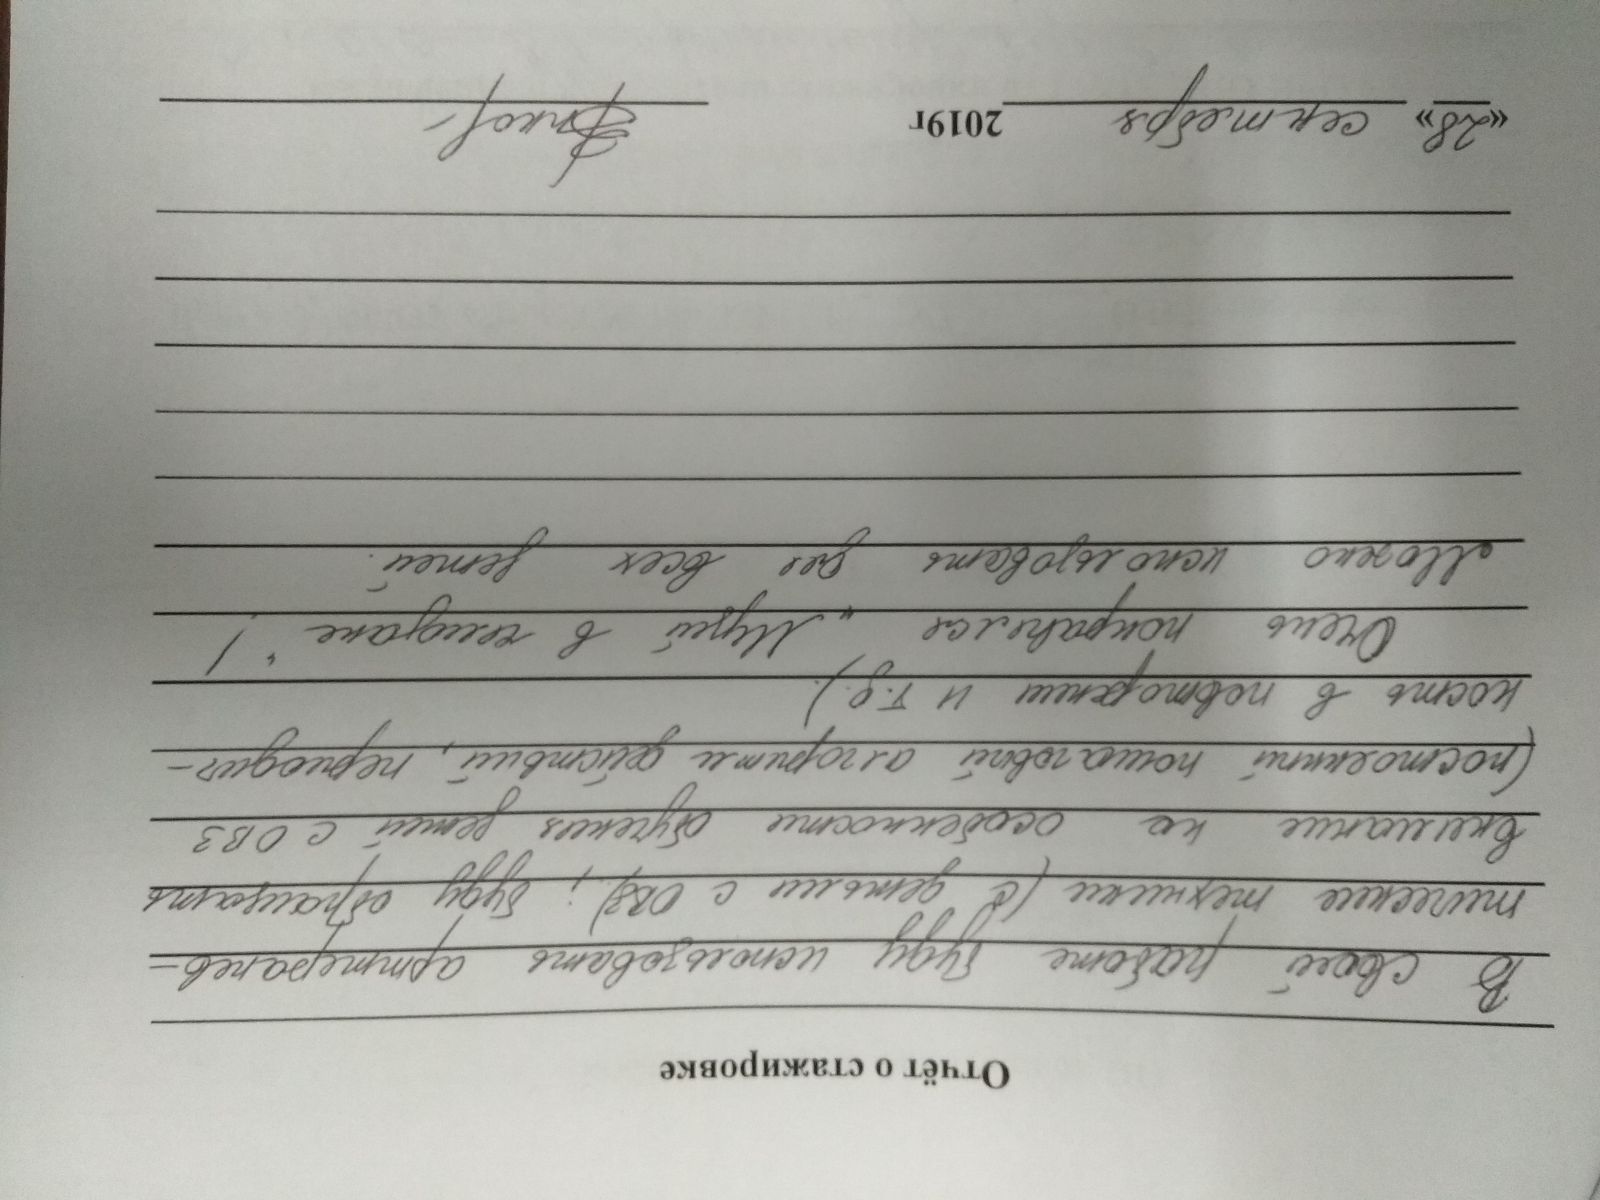 Отчёт о стажировке
В своей работе буду использовать арттерапев-
тические техники (с детьми с ОВЗ); буду обращать
внимание на особенности обучения детей с ОВЗ
(постоянный пошаговый алгоритм действий, периодич-
ность в повторении и т.д.).
Очень понравился „Музей в чемодане"!
Можно использовать для всех детей.
«28» сентября 2019г